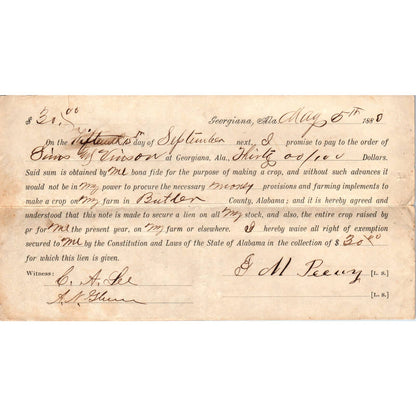 $ 30.00 Georgiana, Ala. May 5th 1880
On the Fifteenth day of September next, I promise to pay to the order of
Sims & Vinson at Georgiana, Ala., Thirty 00/100 Dollars.
Said sum is obtained by Me bona fide for the purpose of making a crop, and without such advances it
would not be in My power to procure the necessary money provisions and farming implements to
make a crop on My farm in Butler County, Alabama; and it is hereby agreed and
understood that this note is made to secure a lien on all My stock, and also, the entire crop raised by
or for Me the present year, on My farm or elsewhere. I hereby waive all right of exemption
secured to Me by the Constitution and Laws of the State of Alabama in the collection of $ 30.00
for which this lien is given.
Witness: M [L. S.]
C. A. Lee
A. N. [L. S.]